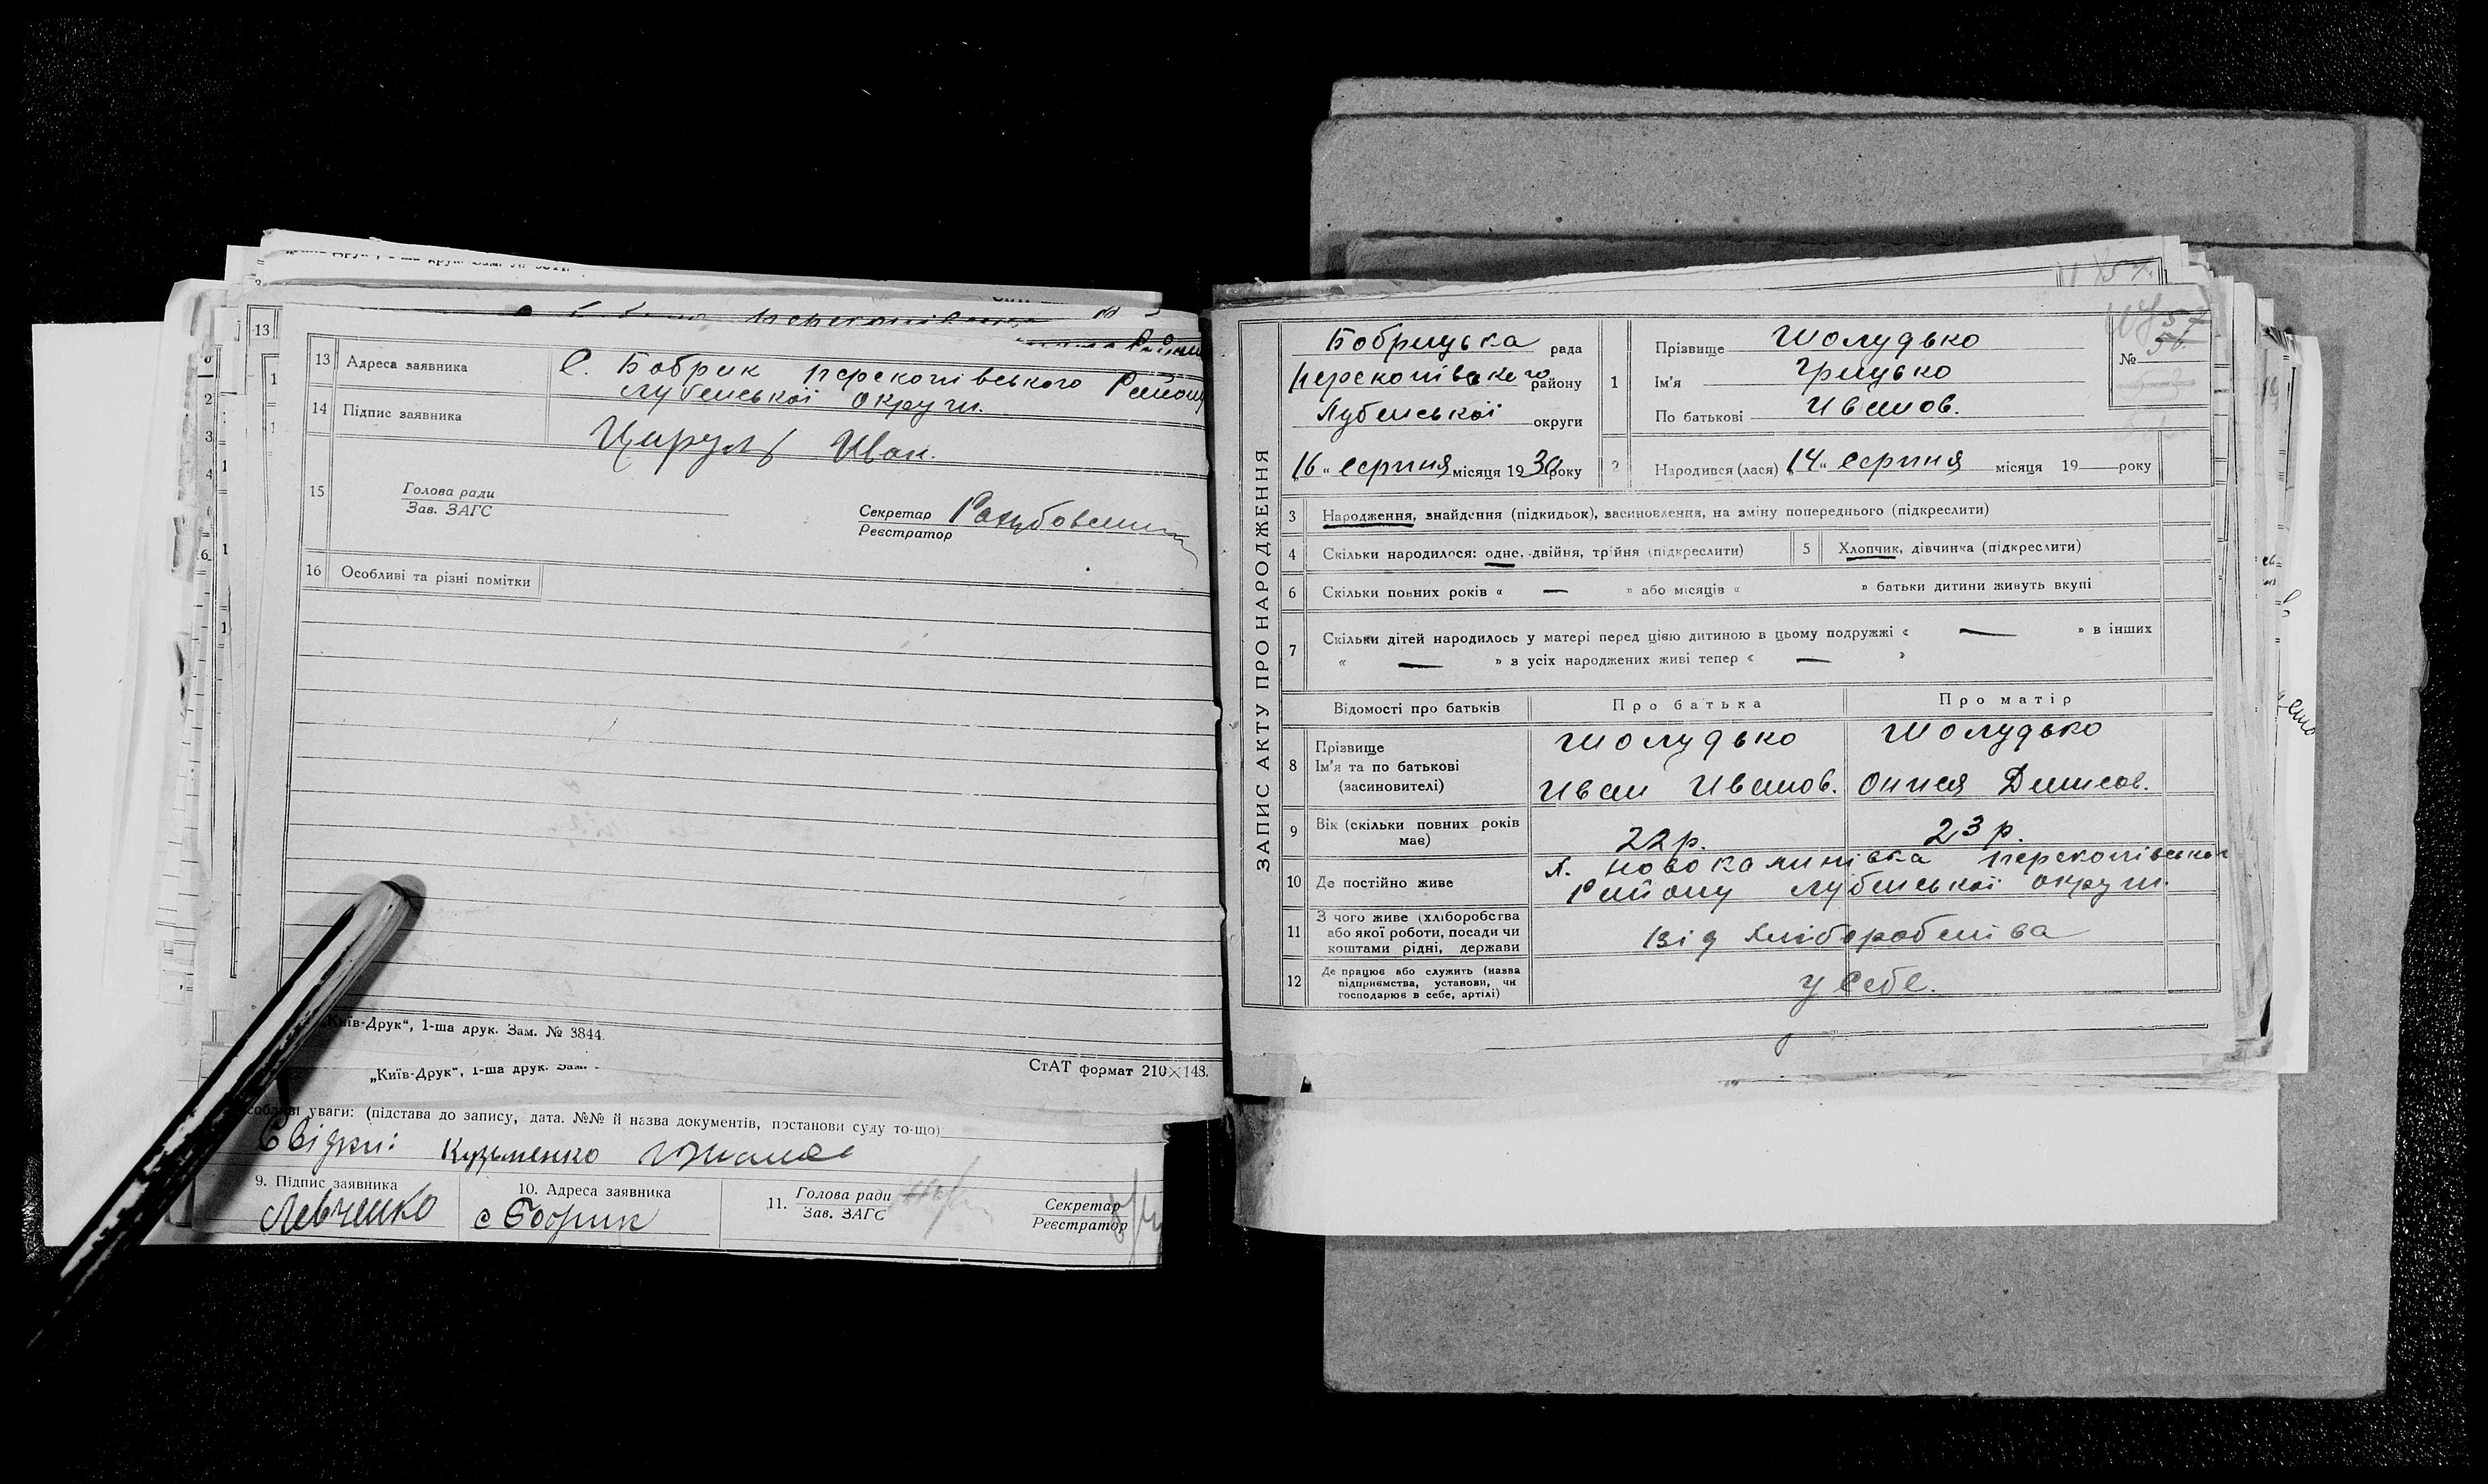 13 Адреса заявника С. Бобрик Перекопівського Району
Лубенської округи.
14 Підпис заявника Цируль Иван.
15 Голова ради
Зав. ЗАГС
Секретар
Реєстратор
16 Особливі та різні помітки
„Київ-Друк“, 1-ша друк. Зам. № 3844.
СтАТ формат 210×148.
„Київ-Друк“, 1-ша друк. Зам.
уваги: (підстава до запису, дата. №№ й назва документів, постанови суду то-що)
Свідки: Кузьменко
9. Підпис заявника Левченко
10. Адреса заявника с Бобрик
11. Голова ради
Зав. ЗАГС
Секретар
Реєстратор
ЗАПИС АКТУ ПРО НАРОДЖЕННЯ
Бобрицька рада
Перекопівського району
Лубенської округи
„16“ Серпня місяця 1930 року
1 Прізвище Шолудько
Ім'я Грицько
По батькові Иванов.
№
2 Народився (лася) „14“ Серпня місяця 19 — року
3 Народження, знайдення (підкидьок), засиновлення, на зміну попереднього (підкреслити)
4 Скільки народилося: одне, двійня, трійня (підкреслити)
5 Хлопчик, дівчинка (підкреслити)
6 Скільки повних років « — » або місяців « » батьки дитини живуть вкупі
7 Скільки дітей народилось у матері перед цією дитиною в цьому подружжі « — » в інших
« — » з усіх народжених живі тепер « — »
Відомості про батьків Про батька Про матір
8 Прізвище
Ім'я та по батькові
(засиновителі)
Шолудько Шолудько
Иван Иванов. Онися Денисов.
9 Вік (скільки повних років має) 22 р. 23 р.
10 Де постійно живе Х. Новокалинівка Перекопівського
Району Лубенської округи.
11 З чого живе (хліборобства
або якої роботи, посади чи
коштами рідні, держави
Від Хліборобства
12 Де працює або служить (назва
підприємства, установи, чи
господарює в себе, артілі)
у себе.